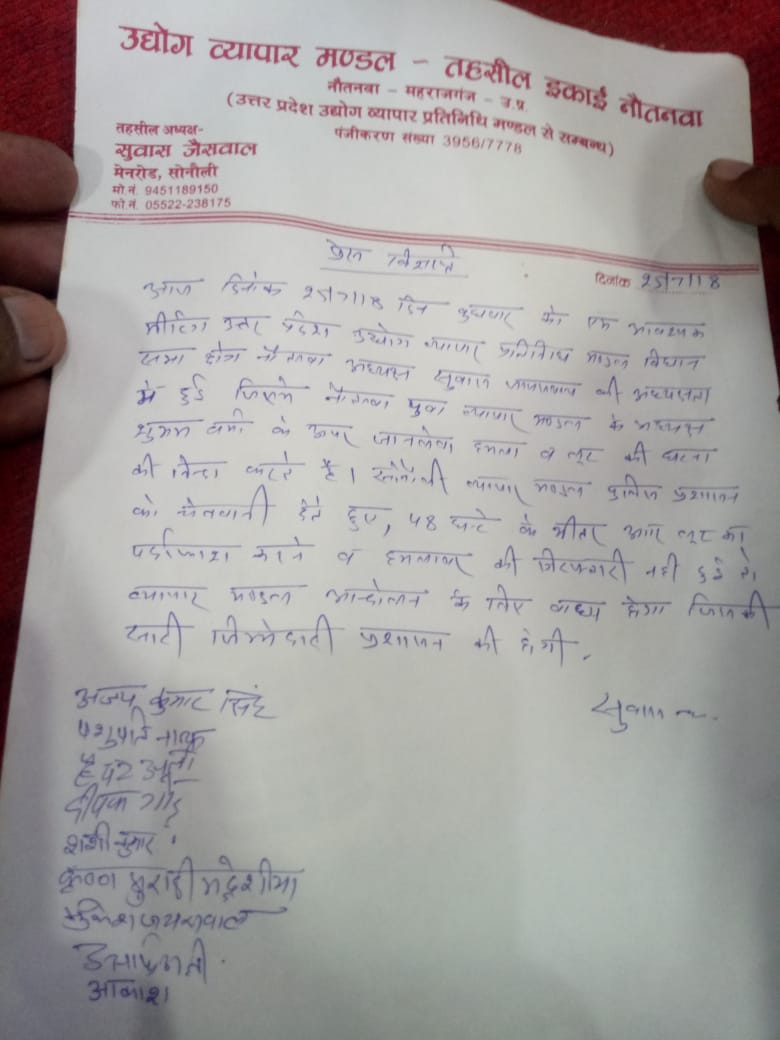 उद्योग व्यापार मण्डल - तहसील इकाई नौतनवा
नौतनवा - महराजगंज - उ.प्र.
(उत्तर प्रदेश उद्योग व्यापार प्रतिनिधि मण्डल से सम्बध)
पंजीकरण संख्या 3956/7778
तहसील अध्यक्ष-
सुवास जैसवाल
मेनरोड, सोनौली
मो.नं. 9451189150
फो.नं. 05522-238175
प्रेस विज्ञप्ति
दिनांक 25/7/18
आज दिनांक 25/7/18 दिन बुधवार को एक आवश्यक
मीटिंग उत्तर प्रदेश उद्योग व्यापार प्रतिनिधि मण्डल विधान
सभा क्षेत्र नौतनवा अध्यक्ष सुवास जायसवाल की अध्यक्षता
में हुई जिसमें नौतनवा युवा व्यापार मण्डल के अध्यक्ष
शुभम वर्मा के ऊपर जानलेवा हमला व लूट की घटना
की निन्दा करते है। सोनौली व्यापार मण्डल पुलिस प्रशासन
को चेतवानी देते हुए, 48 घन्टे के भीतर अगर लूट का
पर्दाफाश करने व हमलावर की गिरफ्तारी नही हुई तो
व्यापार मण्डल आन्दोलन के लिए वाध्य होगा जिसकी
सारी जिम्मेदारी प्रशासन की होगी.
अजय कुमार सिंह
सुवास
पशुपति नाथ
हैदर अली
दीपक
शशी कुमार
कृष्ण मुरारी मद्धेशीया
जायसवाल
आकाश